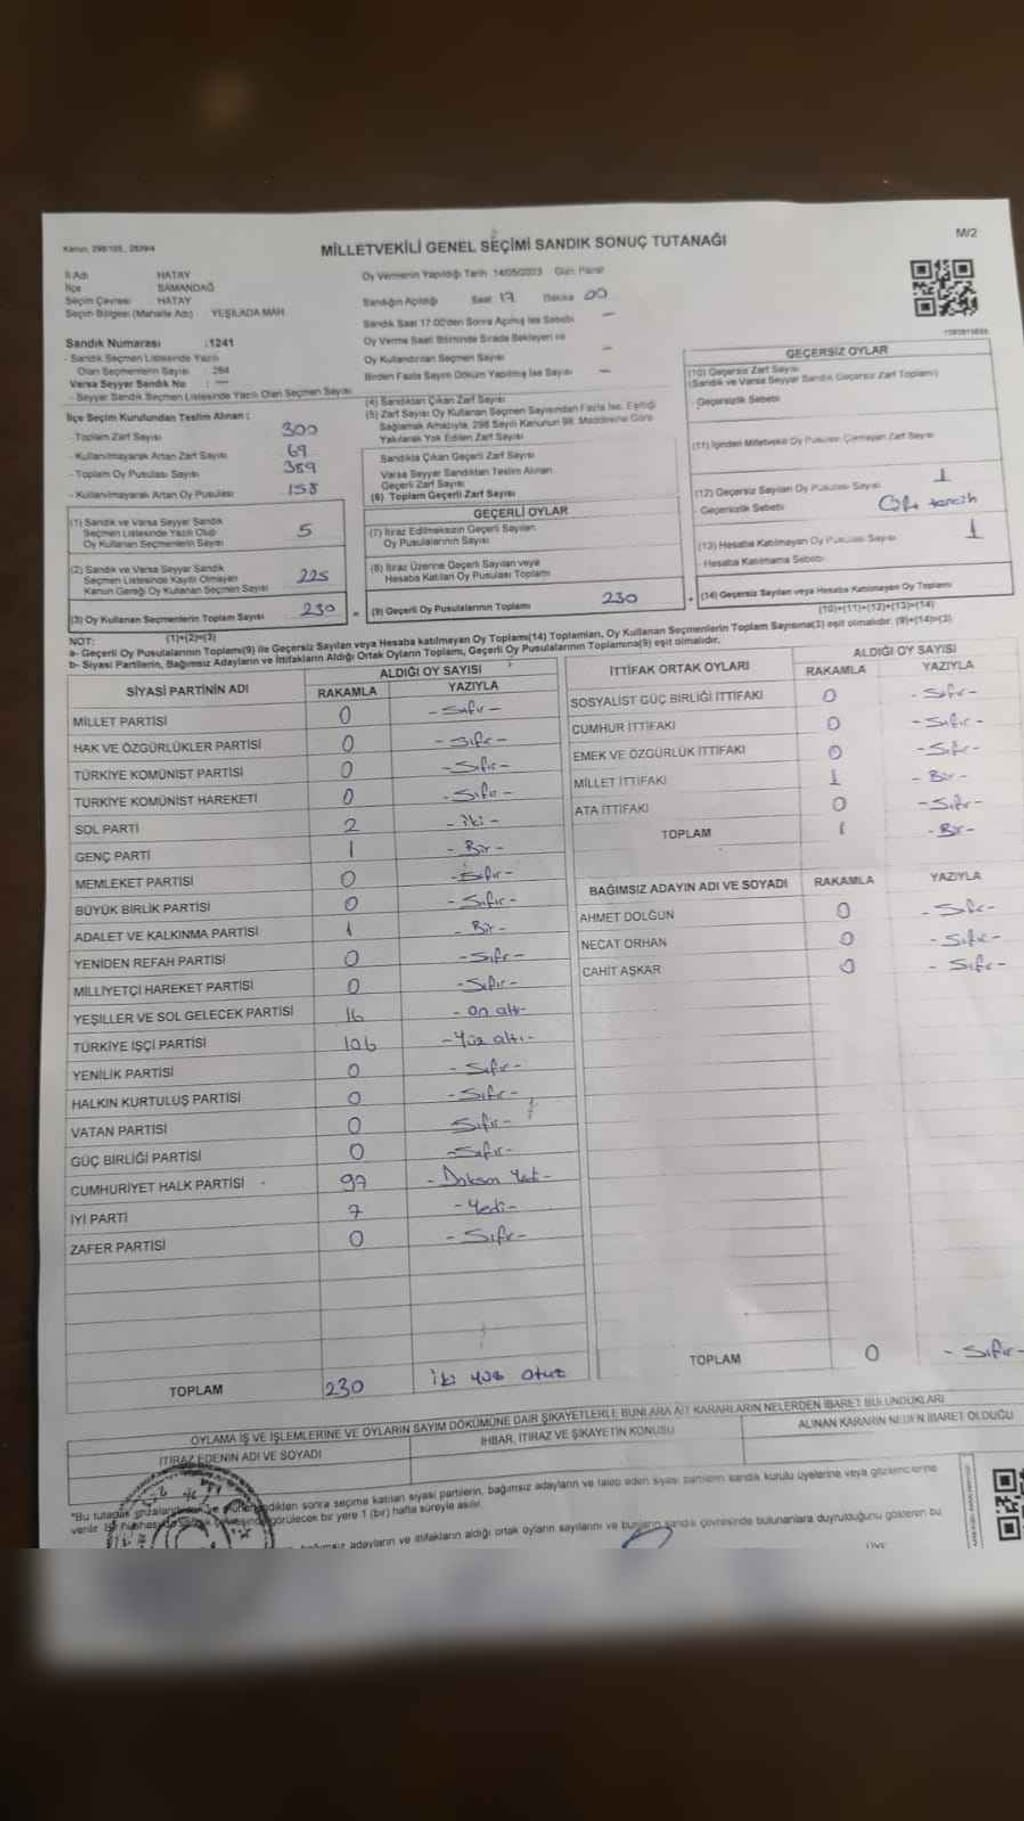 Kanun, 298/105, 2839/4
MİLLETVEKİLİ GENEL SEÇİMİ SANDIK SONUÇ TUTANAĞI
M/2
İl Adı HATAY
İlçe SAMANDAĞ
Seçim Çevresi HATAY
Seçim Bölgesi (Mahalle Adı) YEŞİLADA MAH.
Oy Vermenin Yapıldığı Tarih 14/05/2023 Gün: Pazar
Sandığın Açıldığı Saat 17 Dakika 00
Sandık Saat 17.00'den Sonra Açılmış İse Sebebi —
Oy Verme Saati Bitiminde Sırada Bekleyen ve
Oy Kullandırılan Seçmen Sayısı —
Birden Fazla Sayım Döküm Yapılmış İse Sayısı —
Sandık Numarası :1241
- Sandık Seçmen Listesinde Yazılı
Olan Seçmenlerin Sayısı 284
Varsa Seyyar Sandık No : —
- Seyyar Sandık Seçmen Listesinde Yazılı Olan Seçmen Sayısı
İlçe Seçim Kurulundan Teslim Alınan :
- Toplam Zarf Sayısı 300
- Kullanılmayarak Artan Zarf Sayısı 69
- Toplam Oy Pusulası Sayısı 389
- Kullanılmayarak Artan Oy Pusulası 158
(1) Sandık ve Varsa Seyyar Sandık
Seçmen Listesinde Yazılı Olup
Oy Kullanan Seçmenlerin Sayısı 5
(2) Sandık ve Varsa Seyyar Sandık
Seçmen Listesinde Kayıtlı Olmayan
Kanun Gereği Oy Kullanan Seçmen Sayısı 225
(3) Oy Kullanan Seçmenlerin Toplam Sayısı 230
(1)+(2)=(3)
(4) Sandıktan Çıkan Zarf Sayısı
(5) Zarf Sayısı Oy Kullanan Seçmen Sayısından Fazla İse, Eşitliği
Sağlamak Amacıyla, 298 Sayılı Kanunun 98. Maddesine Göre
Yakılarak Yok Edilen Zarf Sayısı
Sandıkta Çıkan Geçerli Zarf Sayısı
Varsa Seyyar Sandıktan Teslim Alınan
Geçerli Zarf Sayısı
(6) Toplam Geçerli Zarf Sayısı
GEÇERLİ OYLAR
(7) İtiraz Edilmeksizin Geçerli Sayılan
Oy Pusulalarının Sayısı
(8) İtiraz Üzerine Geçerli Sayılan veya
Hesaba Katılan Oy Pusulası Toplamı
(9) Geçerli Oy Pusulalarının Toplamı 230
GEÇERSİZ OYLAR
(10) Geçersiz Zarf Sayısı
(Sandık ve Varsa Seyyar Sandık Geçersiz Zarf Toplamı)
- Geçersizlik Sebebi
(11) İçinden Milletvekili Oy Pusulası Çıkmayan Zarf Sayısı
(12) Geçersiz Sayılan Oy Pusulası Sayısı 1
Geçersizlik Sebebi Çift tercih
(13) Hesaba Katılmayan Oy Pusulası Sayısı 1
- Hesaba Katılmama Sebebi
(14) Geçersiz Sayılan veya Hesaba Katılmayan Oy Toplamı
(10)+(11)+(12)+(13)=(14)
NOT:
a- Geçerli Oy Pusulalarının Toplamı(9) ile Geçersiz Sayılan veya Hesaba katılmayan Oy Toplamı(14) Toplamları, Oy Kullanan Seçmenlerin Toplam Sayısına(3) eşit olmalıdır. (9)+(14)=(3).
b- Siyasi Partilerin, Bağımsız Adayların ve İttifakların Aldığı Ortak Oyların Toplamı, Geçerli Oy Pusulalarının Toplamına(9) eşit olmalıdır.
SİYASİ PARTİNİN ADI ALDIĞI OY SAYISI
RAKAMLA YAZIYLA
MİLLET PARTİSİ 0 - Sıfır -
HAK VE ÖZGÜRLÜKLER PARTİSİ 0 - Sıfır -
TÜRKİYE KOMÜNİST PARTİSİ 0 - Sıfır -
TÜRKİYE KOMÜNİST HAREKETİ 0 - Sıfır -
SOL PARTİ 2 - iki -
GENÇ PARTİ 1 - Bir -
MEMLEKET PARTİSİ 0 - Sıfır -
BÜYÜK BİRLİK PARTİSİ 0 - Sıfır -
ADALET VE KALKINMA PARTİSİ 1 - Bir -
YENİDEN REFAH PARTİSİ 0 - Sıfır -
MİLLİYETÇİ HAREKET PARTİSİ 0 - Sıfır -
YEŞİLLER VE SOL GELECEK PARTİSİ 16 - On altı -
TÜRKİYE İŞÇİ PARTİSİ 106 - Yüz altı -
YENİLİK PARTİSİ 0 - Sıfır -
HALKIN KURTULUŞ PARTİSİ 0 - Sıfır -
VATAN PARTİSİ 0 Sıfır -
GÜÇ BİRLİĞİ PARTİSİ 0 - Sıfır -
CUMHURİYET HALK PARTİSİ 97 - Doksan Yedi -
İYİ PARTİ 7 - Yedi -
ZAFER PARTİSİ 0 - Sıfır -
TOPLAM 230 iki yüz otuz
İTTİFAK ORTAK OYLARI ALDIĞI OY SAYISI
RAKAMLA YAZIYLA
SOSYALİST GÜÇ BİRLİĞİ İTTİFAKI 0 - Sıfır -
CUMHUR İTTİFAKI 0 - Sıfır -
EMEK VE ÖZGÜRLÜK İTTİFAKI 0 - Sıfır -
MİLLET İTTİFAKI 1 - Bir -
ATA İTTİFAKI 0 - Sıfır -
TOPLAM 1 - Bir -
BAĞIMSIZ ADAYIN ADI VE SOYADI RAKAMLA YAZIYLA
AHMET DOLĞUN 0 - Sıfır -
NECAT ORHAN 0 - Sıfır -
CAHİT AŞKAR 0 - Sıfır -
TOPLAM 0 - Sıfır -
OYLAMA İŞ VE İŞLEMLERİNE VE OYLARIN SAYIM DÖKÜMÜNE DAİR ŞİKAYETLERLE BUNLARA AİT KARARLARIN NELERDEN İBARET BULUNDUKLARI
İTİRAZ EDENİN ADI VE SOYADI İHBAR, İTİRAZ VE ŞİKAYETİN KONUSU ALINAN KARARIN NEDEN İBARET OLDUĞU
"Bu tutanak sonra seçime katılan siyasi partilerin, bağımsız adayların ve talep eden siyasi partilerin sandık kurulu üyelerine veya gözlemcilerine
verilir. Bir nüshası da görülecek bir yere 1 (bir) hafta süreyle asılır.
adayların ve ittifakların aldığı ortak oyların sayılarını ve bunların sandık çevresinde bulunanlara duyurulduğunu gösteren bu